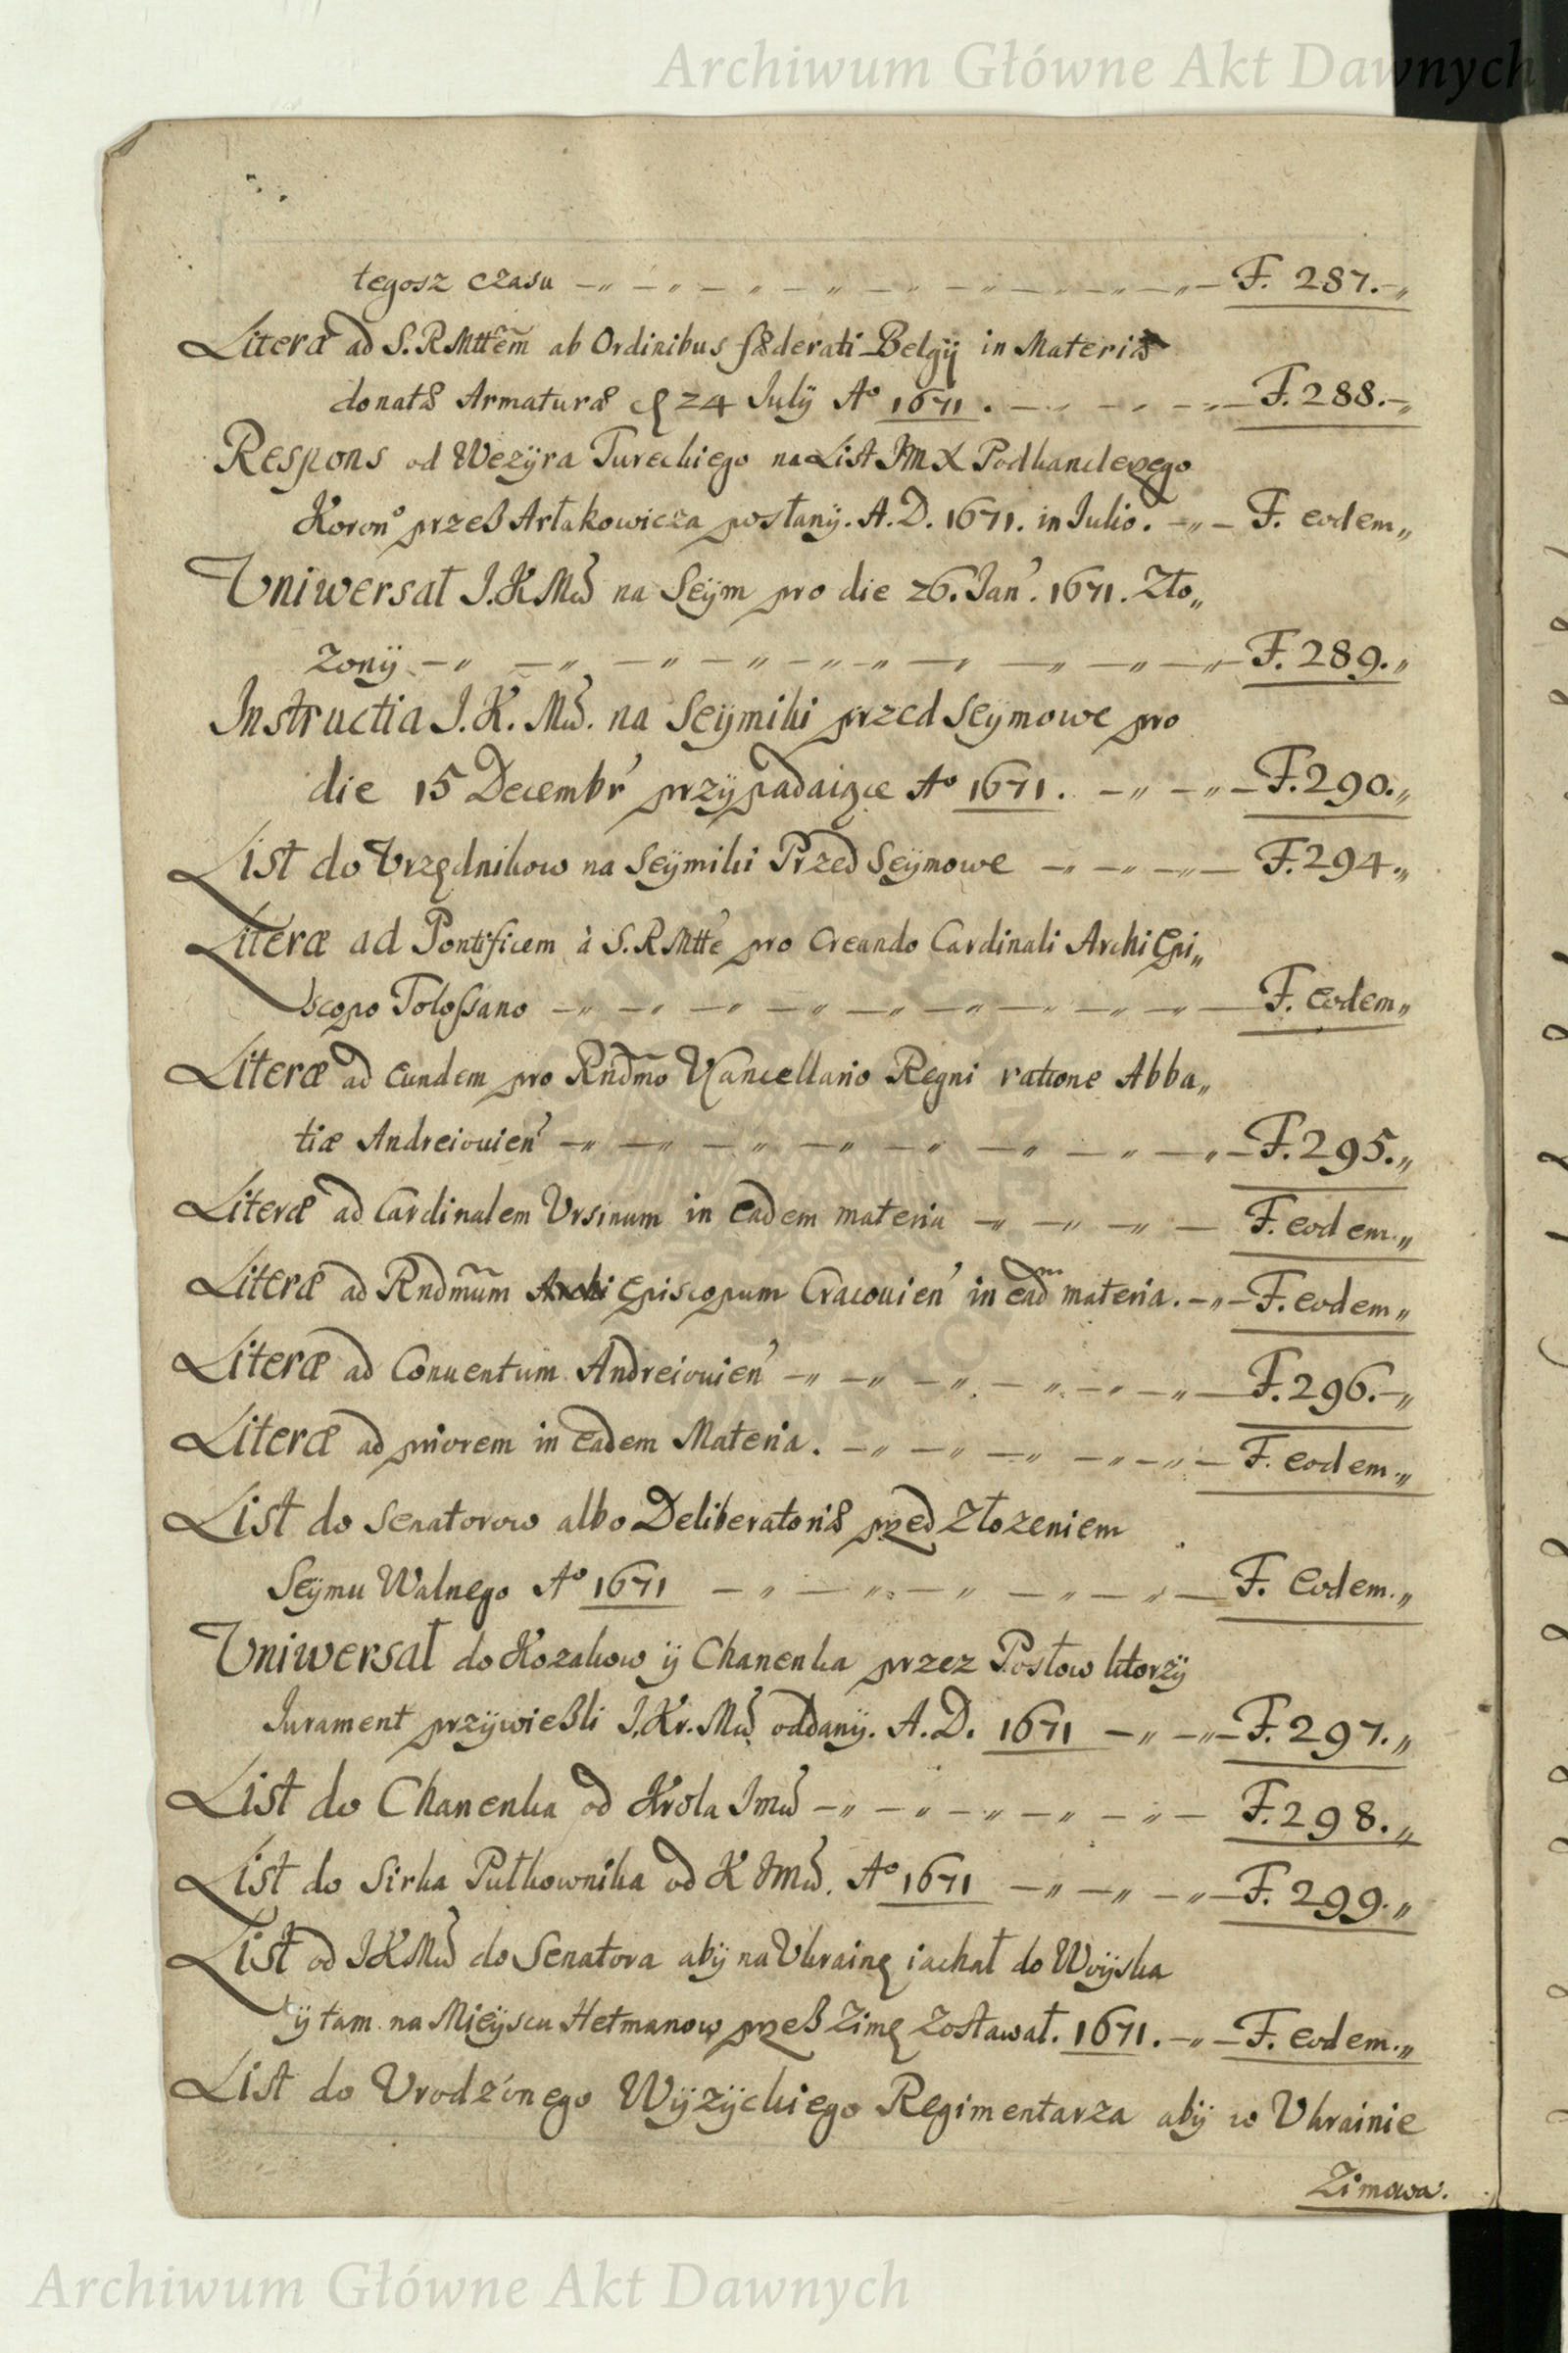 Archiwum Główne Akt Dawnych
tegosz czasu -„ -„ -„ -„ -„ -„ -„ F. 287.-„
Literæ ad S. R Mttem̃ ab Ordinibus fæderati Belgÿ in Materia
donatæ Armaturæ 24 Julÿ Aº 1671. - - - - F. 288.-„
Respons od Wezÿra Tureckiego na List JM X Podkanclerzego
Koronº przeß Artakowicza posłanÿ. A. D. 1671. in Julio. -„- F. eodem„
Vniwersał J. K Mći na Seÿm pro die 26. Jan’. 1671. Zło„
zonÿ -„ -„ -„ -„ -„ -„ -„ -„ -„ F. 289.„
Instructia J. K. Mći. na Seÿmiki przed Seÿmowe pro
die 15 Decembr’ przÿpadaiące Aº 1671. -„ -„ - F. 290.„
List do Vrzędnikow na Seÿmiki Przed Seÿmowe -„ -„ -„ - F. 294.„
Literæ ad Pontificem à S. R Mtte pro Creando Cardinali Archi Epi„
scopo Tolossano -„ -„ -„ -„ -„ -„ -„ -„ - F. Eodem„
Literæ ad Eundem pro Rndm̃o VCancellario Regni ratione Abba„
tiæ Andreiouien’ -„ -„ -„ -„ -„ -„ -„ -„ - F. 295.„
Literæ ad Cardinalem Vrsinum in Eadem materia -„ -„ -„ - F. eodem.„
Literæ ad Rndmũm Archi Episcopum Cracouien’ in eadm materia. -„- F. eodem„
Literæ ad Conuentum Andreiouien’ -„ -„ -„ -„ -„ -„ - F. 296.-„
Literæ ad priorem in Eadem Materia. -„ -„ -„ -„ -„ - F. eodem.„
List do Senatorow albo Deliberatoriæ przed Złozeniem
Seÿmu Walnego Aº 1671 -„ -„ -„ -„ -„ - F. Eodem.„
Vniwersał do Kozakow ÿ Chanenka przez Posłow ktorzÿ
Jurament przÿwießli J. Kr. Mći oddanÿ. A. D. 1671 -„ -„- F. 297.„
List do Chanenka od Krola Jmći -„ -„ -„ -„ -„ - F. 298.„
List do Sirka Pułkownika od K Jmći. Aº 1671 -„ -„ -„- F. 299.„
List od J K Mći do Senatora abÿ na Vkrainę iachał do Woÿska
ÿ tam na Mieÿscu Hetmanow przeß Zimę Zostawał. 1671. -„- F. Eodem.„
List do Vrodzonego Wÿzÿckiego Regimentarza abÿ w Vkrainie
Zimowa.
Archiwum Główne Akt Dawnych